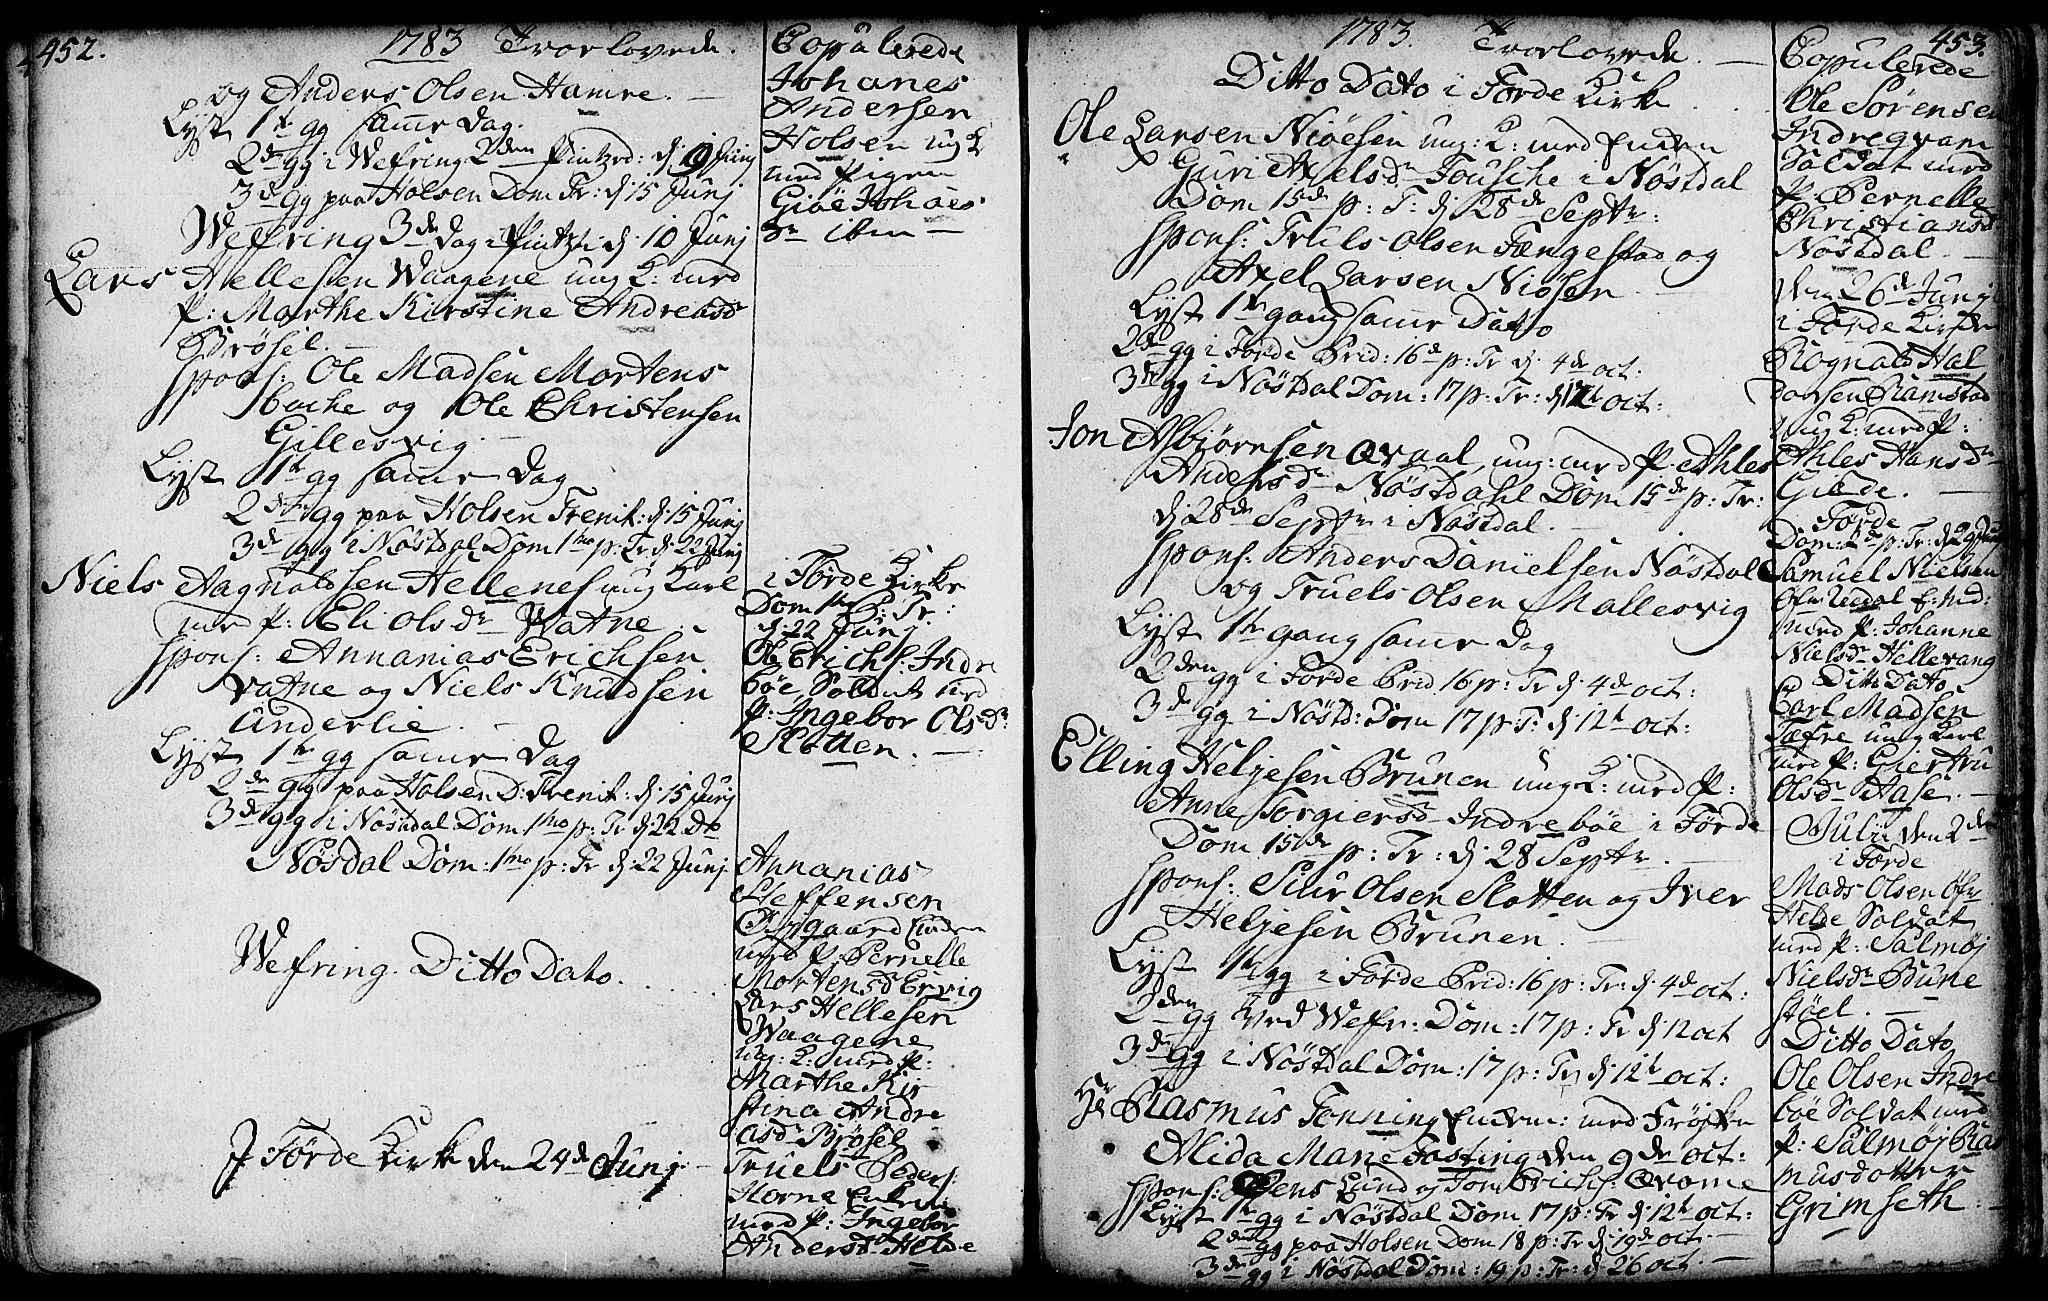 452.
1783 Trorlovede.
og Anders Olsen Hamre. —
Lyst 1te gg samme Dag.
2den gg i Wefring 2den Pintzed: dj 9 Junj
3de gg paa Holsen Dom Tr: dj 15 Junj
Wefring 3de dag Pintzt: dj 10 Junj
Lars Hellesen Waagene ung K: med
P: Marthe Kirstine Andreasdr
Brøsel. —
Spons: Ole Madsen Mortens
bache og Ole Christensen
Gillesvig. —
Lyst 1te gg samme Dag
2den gg paa Holsen Trenit: dj 15 Junj
3de gg i Nøstdal Dom 1mo p: Tr dj 22 Junj
Niels Aagnaldsen Hellenes ung Karl
med P. Eli Olsdr Watne.
Spons: Annanias Erichsen
Vatne og Niels Knudsen
Underlie. —
Lyst 1te gg samme Dag
2den gg paa Holsen D: Trenit: dj 15 Junj
3de gg i Nøstdal Dom 1mo p: Tr dj 22 Do
Nøsdal Dom: 1mo p: Tr dj 22 Junj
Wefring. Ditto Dato.
J Førde Kirke den 24de Junj. —
Copulerede
Johanes
Andersen
Holsen ug K
med Pigen
Giøe Johaes
dr ibm —
i Førde Kirke
Dom 1mo P: Tr:
dj 22 Junj.
Ole Erichs: Indre
bøe Soldat med
P: Ingebor Olsdr:
Slotten. —
Annanias
Steffensen
med P. Pernelle
Mortensdr Ervig
Lars Hellesen
Waagene
ug: K: med P:
Marthe Kir
stina Andre
asdr Brøsel
Truels Peders:
Horne Enkem:
med P: Ingebor
Andersdr Helde
453.
1783. Trorlovede. —
Ditto Dato i Førde Kirke
Ole Larsen Niøesen ung: K: med Enken
Guri Axelsdr Fousche i Nøstdal
Dom 15de p: T: dj 28de Septr:
Spons: Truls Olsen Fængestad og
Axel Larsen Niøsen —
Lyst 1te gang samme Dato
2den gg i Førde Prid: 16de p: Tr dj 4de oct:
3de gg i Nøstdal Dom: 17 p: Tr: dj 12te oct:
Jon Abjørnsen Qvaal, ung: med P. Ahles
Andersdr Nøstdahl Dom 15de p: Tr:
dj 28de Septr i Nøstdal. —
Spons: Anders Danielsen Nøstdal
og Truels Olsen Mallesvig
Lyst 1te gang samme Dag
2den gg i Førde Prid 16 p: Tr dj 4de oct:
3de gg i Nøstd: Dom 17 p: T: dj 12te oct:
Elling Heljesen Brunen ung K: med P:
Anne Torgiersdr Indrebøe i Førde
Dom 15de p: Tr: dj 28 Septr. —
Spons: Siur Olsen Slotten og Iver
Heljesen Brunen. —
Lyst 1te gg i Førde Prid: 16 p: Tr: dj 4de oct:
2den gg ved Wefr: Dom: 17 p: Tr dj 12 oct
3de gg i Nøstdal Dom: 17 p: Tr dj 12te oct:
Hr Rasmus Tønning Enkem: med Frøken
Alida Marie Fasting den 9de oct:
Spons: Jens Lund og Jon Erichs: Qvame
Lyst 1te gg i Nøstdal Dom 17 p: Tr dj 12te oct:
2den gg paa Holsen Dom 18 p: Tr dj 19de oct: —
3de gg i Nøstdal Dom: 19 p: Tr: dj 26 oct: —
Copulerede
Ole Sørensen
Indreqvam
Soldat med
P. Pernelle
Christiansdr
Nøstdal. —
den 26de Junj
i Førde Kirke
Rognald Hal
vorsen Ramstad
ung K: med P:
Ahles Hansdr
Giøde. —
Førde
Dom: 2de p: Tr: dj 29 Junj
Samuel Nielsen
med P. Johanne
Nielsdr Hellevang
Ditto Dato
Carl Madsen
Tæfre ung Karl
med P: Giertru
Olsdr Aase. —
Julij den 2den
i Førde
Mads Olsen Øfr
Helde Soldat
med P: Salmøj
Nielsdr Bune
støel. —
Ditto Dato
Ole Olsen Indre
bøe Soldat med
P: Salmøj Ras
musdotter
Grimseth